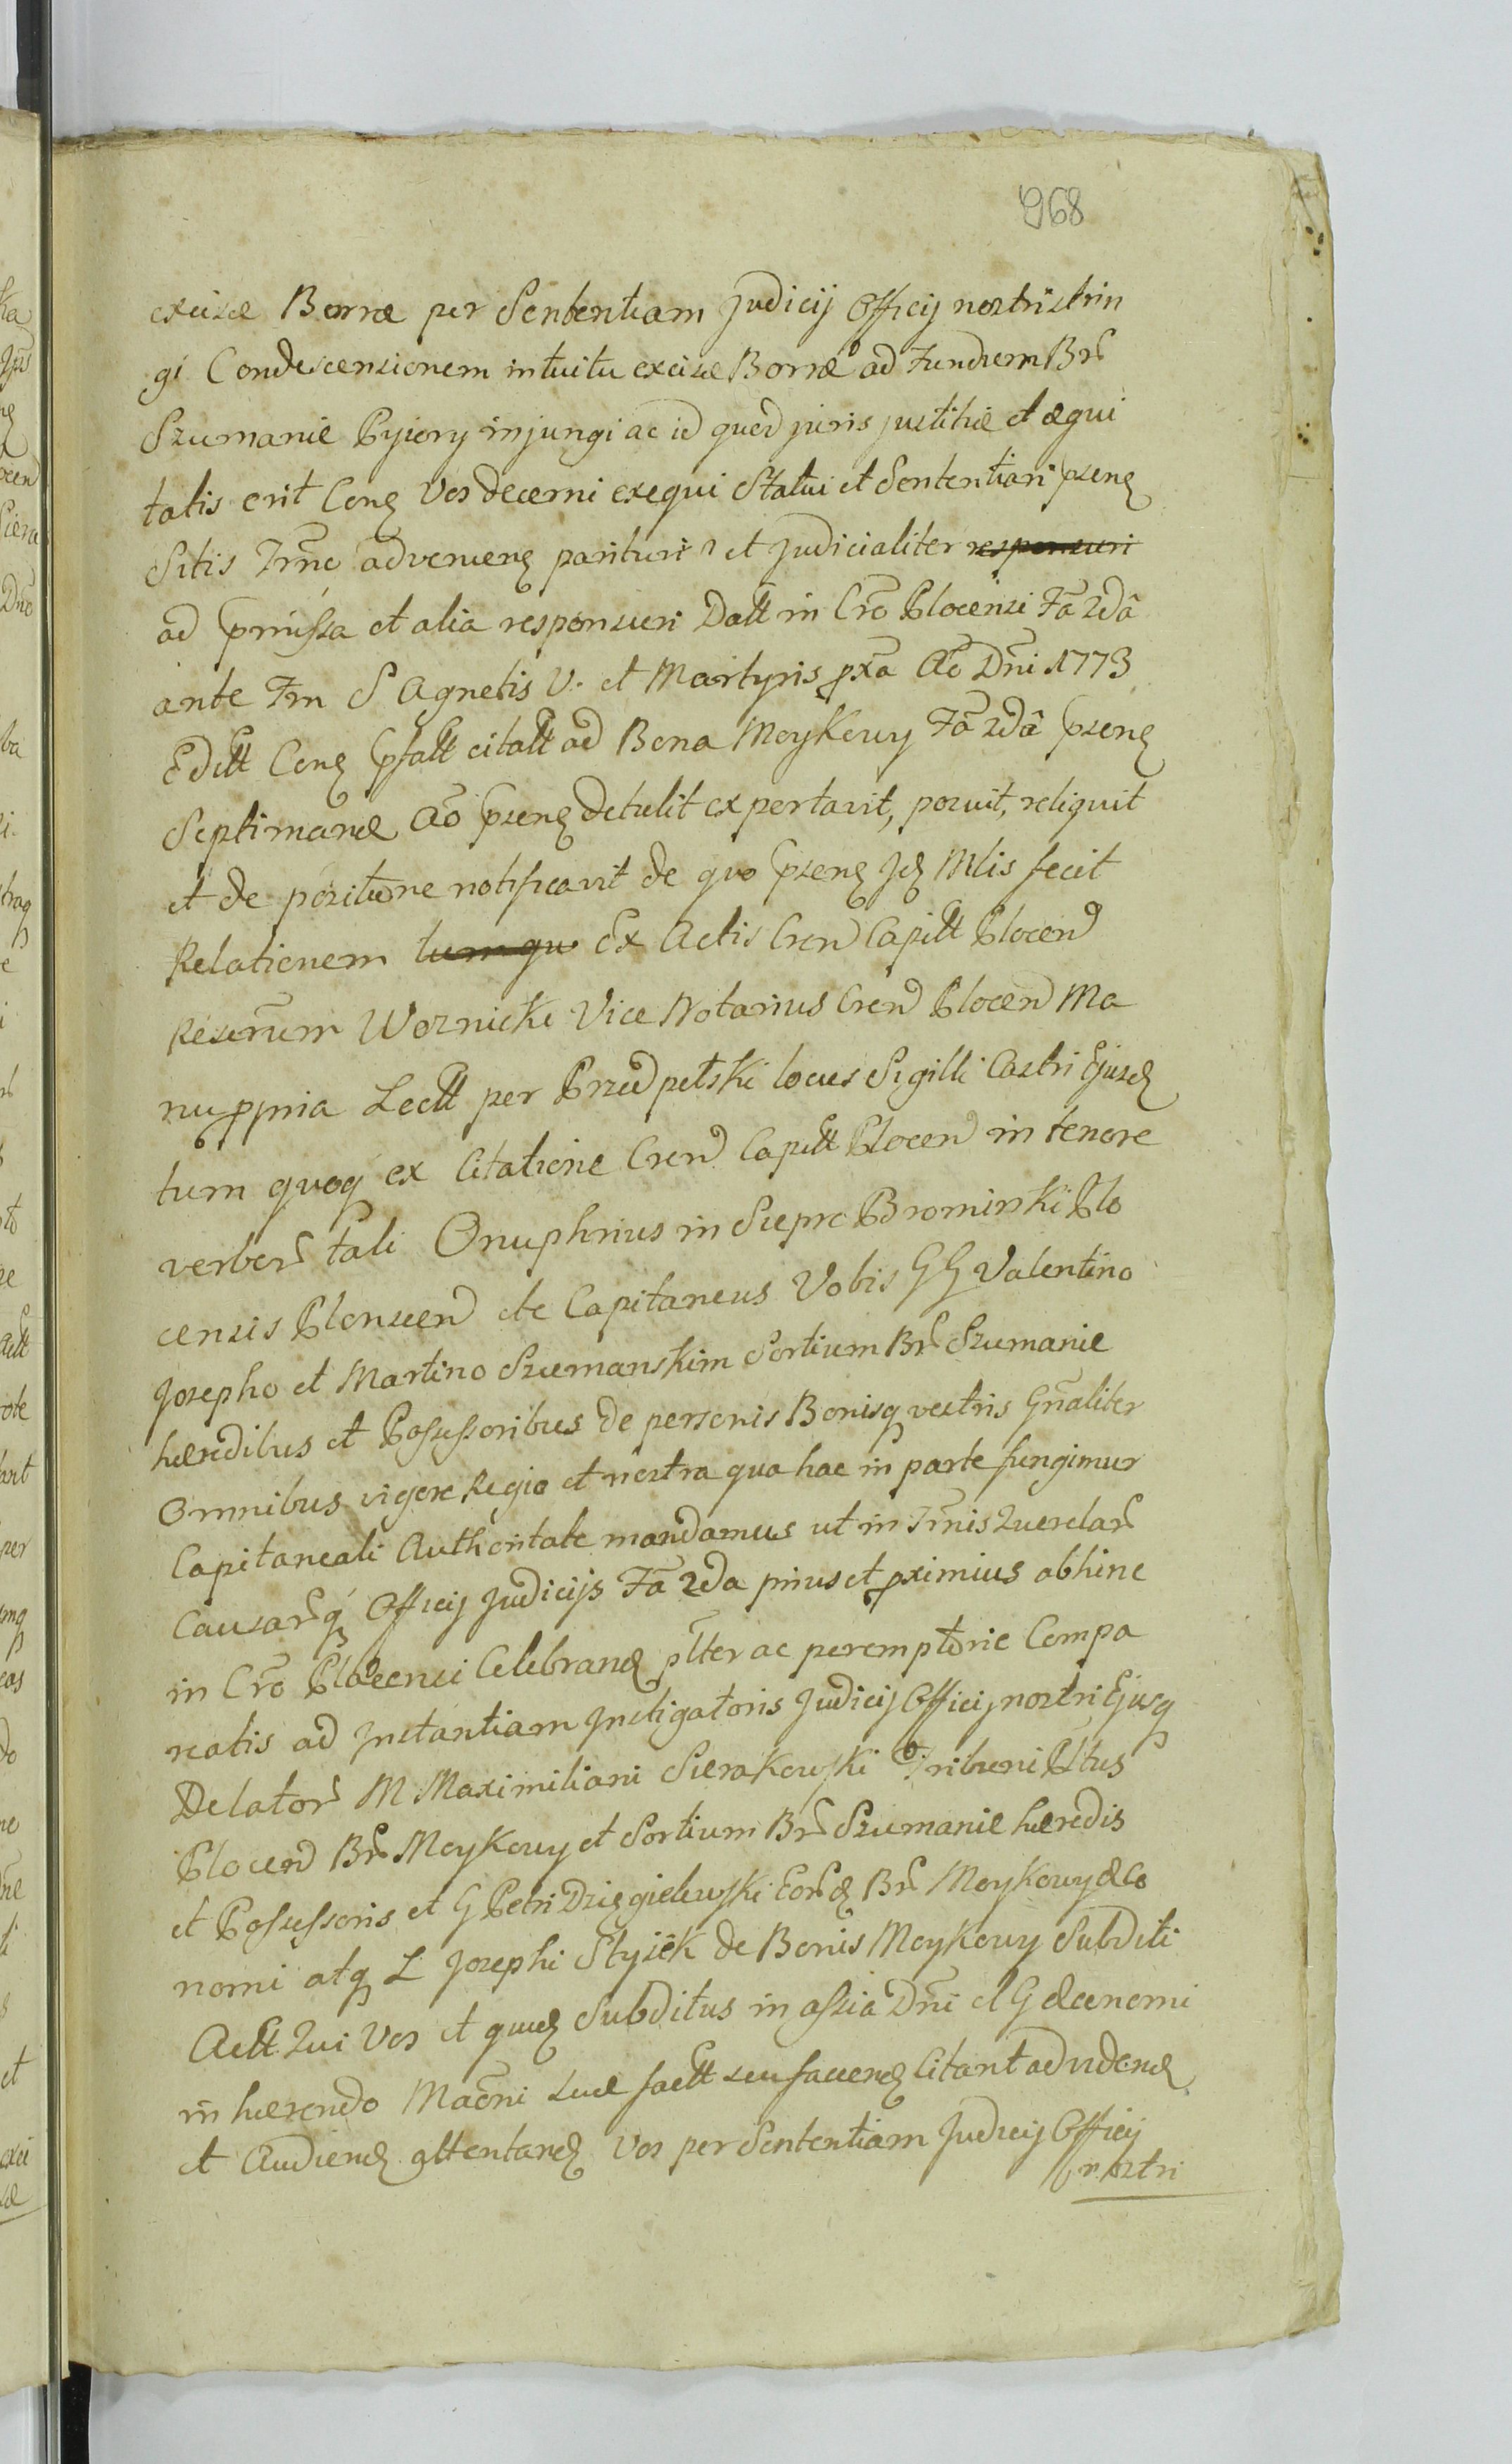 968
excisæ Borræ per Sententiam Judicij Officij nostri strin
gi Condescensionem intuitu excisæ Borræ ad Fundum Br
Szumanie Pyiory injungi ac id quod juris justitiæ et æqui
tatis erit Conq Vos decerni exequi Statui et Sententiari psenq
Sitis Trno advenienq parituri et Judicialiter responsuri
ad pmissa et alia responsuri Datt in Cro Plocensi Fa 2da
ante Fm S Agnetis V. et Martyris pxa Ao Dni 1773
Editt Conq psatt citatt ad Bona Moykowy Fa 2da psenq
Septimanæ Ao psenq detulit exportavit, posuit, reliquit
et de positione notificavit de quo psenq Jq Mlis fecit
Relationem tum qu Ex Actis Cren Capitt Plocen
Resernm Woznicki Vice Notarius Cren Plocen Ma
nu ppria Lectt per Przedpełski locus Sigilli Castri Ejusd
tum quoq ex Citatione Cren Capitt Plocen in tenore
verbor tali Onuphrius in Siepre Bromirski Plo
censis Plonscen etc Capitaneus Vobis GG Valentino
Josepho et Martino Szumanskim Sortium Br Szumanie
hæredibus et Possessoribus de personis Bonisq vestris Gnaliter
Omnibus vigore Regia et nostra qua hac in parte fungimur
Capitaneali Authoritate mandamus ut in Trnis Querelar
Causarq Officij Judicijs Fa 2da prius et pximius abhinc
in Cro Plocensi Celebrand plter ac peremptorie Compa
reatis ad Instantiam Instigatoris Judicij Officij nostri Ejusq
Delator M Maximiliani Sierakowski Tribuni Pltus
Plocen Br Moykowy et Sortium Br Szumanie hæredis
et Possessoris et G Petri Dzięgielewski Eord Br Moykowy Æco
nomi atq L Josephi Styżek de Bonis Moykowy Subditi
Actt Qui Vos et quid Subditus in assia Dni et G Æconomi
in hærendo Maoni suæ factt seu faciend Citant ad vidend
et Audiend attentand Vos per Sententiam Judicij Officij
nostri